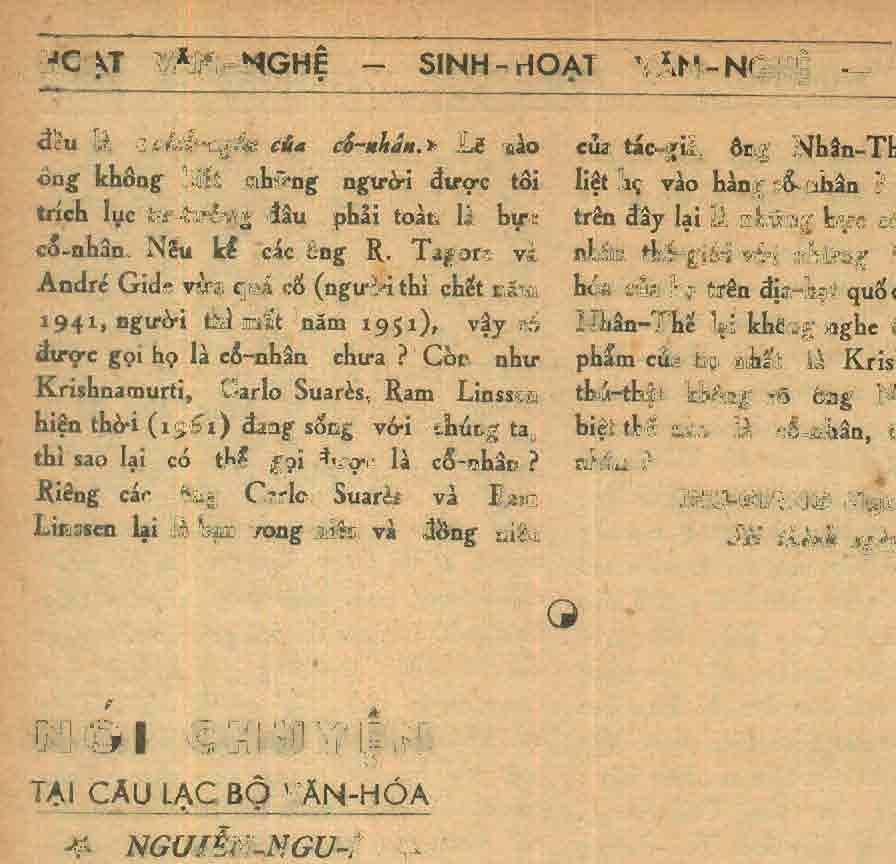 HOẠT VĂN-NGHỆ — SINH-HOẠT VĂN-NGHỆ —
đều là của cổ-nhân.» Lẽ nào
ông không biết những người được tôi
trích lục tư-tưởng đâu phải toàn là bực
cổ-nhân. Nếu kể các ông R. Tagore và
André Gide vừa quá cố (người thì chết năm
1941, người thì mất năm 1951), vậy có
được gọi họ là cổ-nhân chưa ? Còn như
Krishnamurti, Carlo Suarès, Ram Linssen
hiện thời (1961) đang sống với chúng ta,
thì sao lại có thể gọi được là cổ-nhân ?
Riêng các ông Carlo Suarès và Ram
Linssen lại là bạn vong niên và đồng niên
của tác-giả, ông Nhân-Th
liệt họ vào hàng cổ-nhân ?
trên đây lại là những bực
nhân thế-giới với những
hóa của họ trên địa-hạt quốc
Nhân-Thế lại không nghe
phẩm của họ nhất là Kris
thú-thật không rõ ông
biệt thế nào là cổ-nhân,
nhân ?
NÓI CHUYỆN
TẠI CÂU LẠC BỘ VĂN-HÓA
NGUIỄN-NGU-